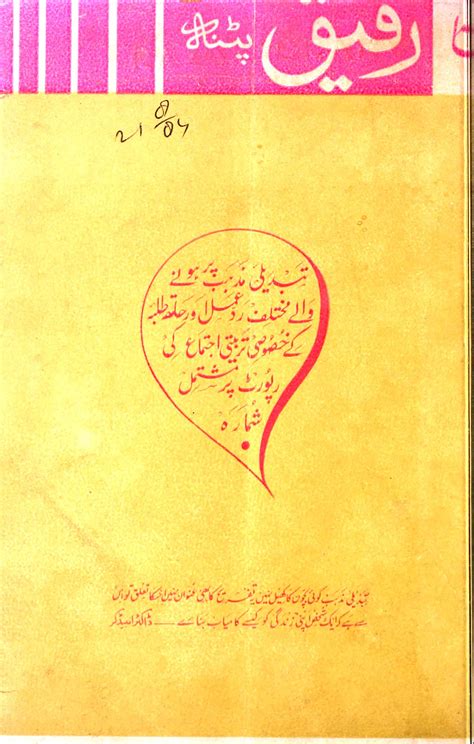 رفیق پٹنہ
تبدیلی مذہب پر ہونے
والے مختلف ردعمل اور حلقہ طلبہ
کے خصوصی تربیتی اجتماع کی
رپورٹ پر مشتمل
شمارہ
تبدیلی مذہب کوئی بچوں کا کھیل نہیں یہ تفریح کا بھی عنوان نہیں اسکا تعلق تو اس
سے ہے کہ ایک شخص اپنی زندگی کو کیسے کامیاب بنائے — ڈاکٹر امبیڈکر